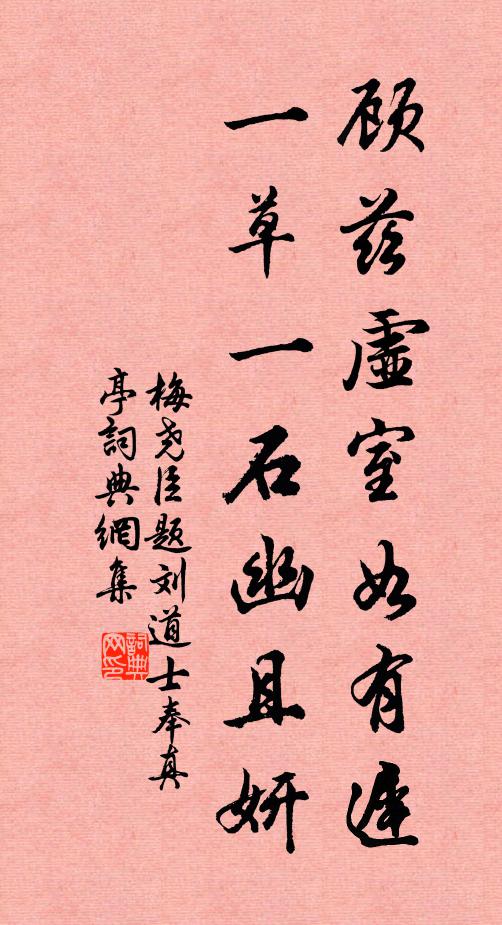 顾兹虚室如有遲
一草一石幽且妍
梅尧臣题刘道士奉真
亭詞典網集
詞典網印